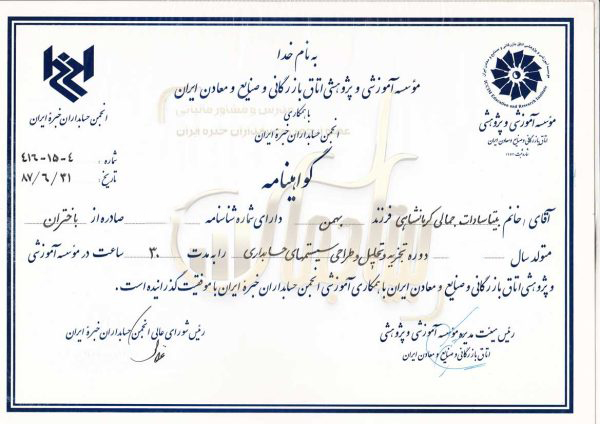 به نام خدا
مؤسسه آموزشی و پژوهشی اتاق بازرگانی و صنایع و معادن ایران
با همکاری
انجمن حسابداران خبرهٔ ایران
انجمن حسابداران خبرهٔ ایران
مؤسسه آموزشی و پژوهشی
اتاق بازرگانی و صنایع و معادن ایران
شماره : ۴۱۶-۱۵-۴
تاریخ : ۸۷/۶/۳۱
گواهینامه
آقای / خانم بیتا سادات جمالی کرمانشاهی فرزند بهمن دارای شماره شناسنامه صادره از باختران
متولد سال دوره تجزیه و تحلیل و طراحی سیستمهای حسابداری را به مدت ۳۰ ساعت در مؤسسه آموزشی
و پژوهشی اتاق بازرگانی و صنایع و معادن ایران با همکاری آموزشی انجمن حسابداران خبرهٔ ایران با موفقیت گذرانیده است.
رئیس هیئت مدیره مؤسسه آموزشی و پژوهشی
اتاق بازرگانی و صنایع و معادن ایران
رئیس شورای عالی انجمن حسابداران خبرهٔ ایران